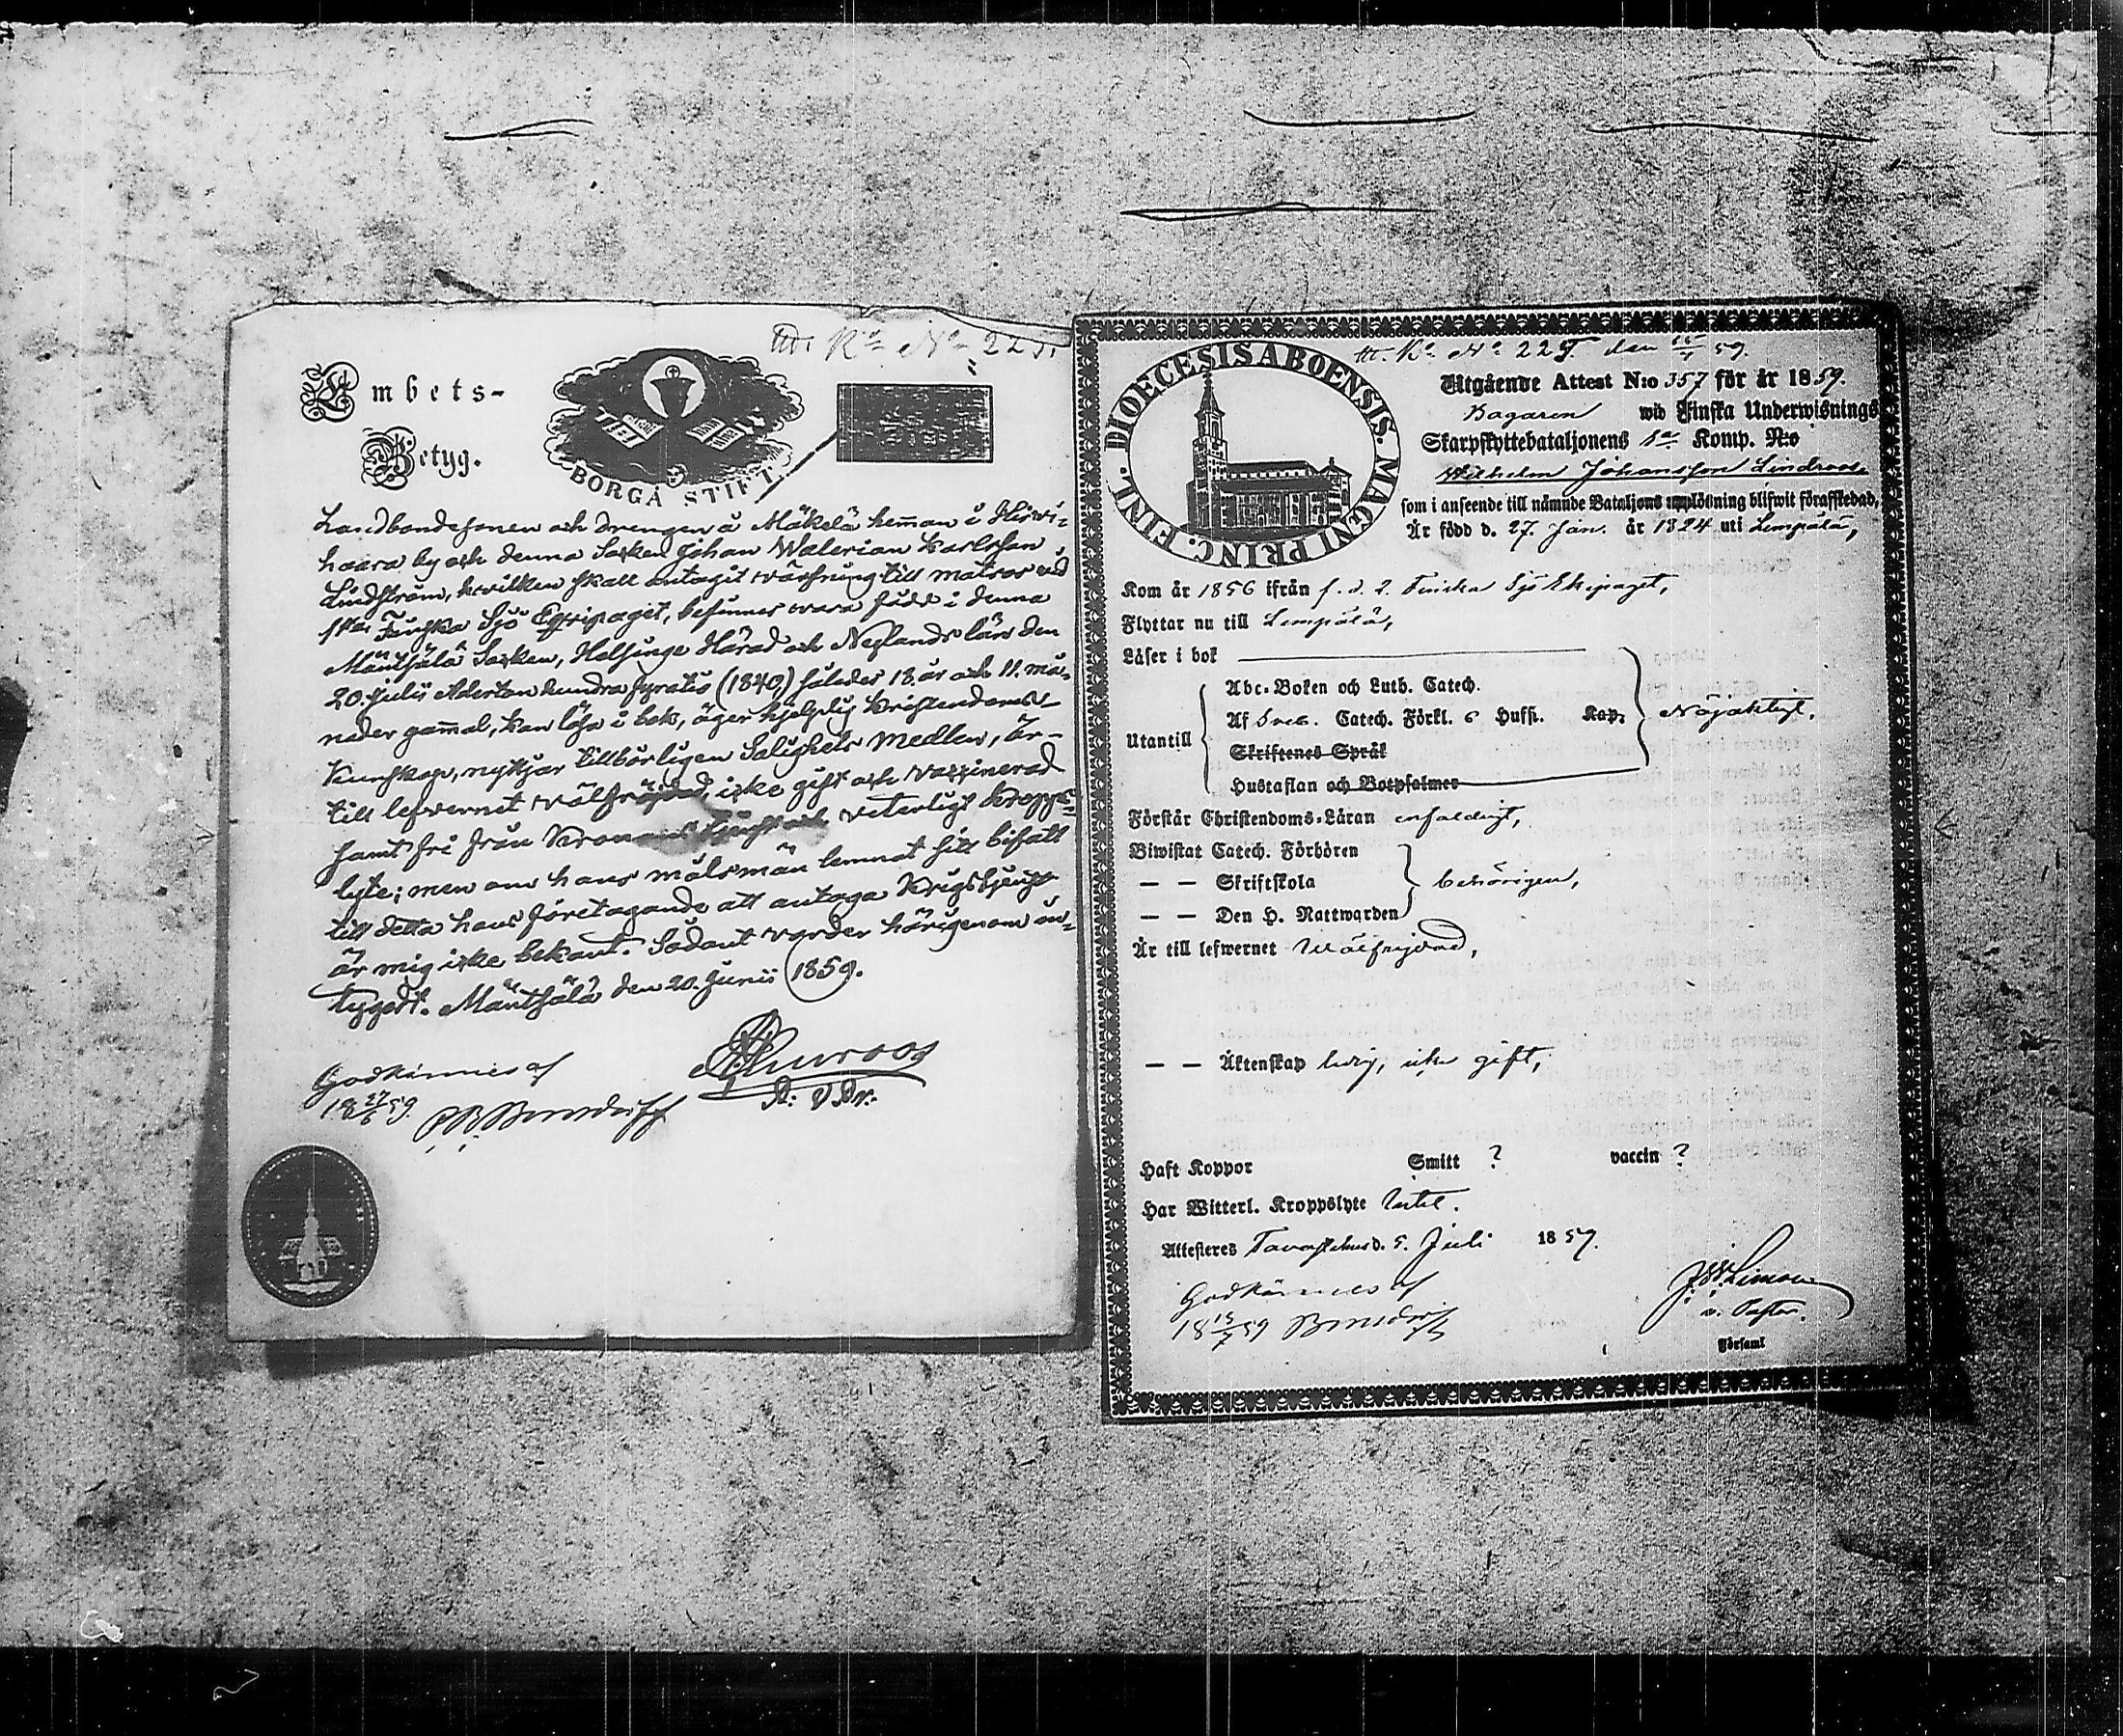 Embets-
Betyg.
BORGÅ STIFT.
Landbondesonen och drengen å Mäkelä heman i Hirvi-
haara by och denna Socken Johan Walerian Karlsson
Lindström, hvilken skall antagit värfning till matros vid
1sta Finska Sjö Eqvipaget, befinnes vara född i denna
Mäntsälä Socken, Helsinge Härad och Neylands län den
20. Julii Adertonhundra fyratio (1840,) således 18. år och 11. må-
nader gammal, kan läsa i bok, äger hjelplig Kristendoms-
kunskap, nyttjar tillbörligen Salighets medlen, är-
till lefvernet välfräjdad, icke gift och vaccinerad
samt fri från Kronans tjenst och veterligt Kropps-
lyte; men om hans målsmän lemnat sitt bifall
till detta hans företagande att antaga Krigstjenst
är mig icke bekant. Sådant varder härigenom in-
tygadt. Mäntsälä den 20. Junii 1859.
Godkännes af
18 27/6 59.
DIOECESIS ABOENSIS. MAGNI PRINC. FINL.
No 225. den 15/7 59.
Utgående Attest N:o 357 för år 1859.
Bagaren wid Finska Underwisnings
Skarpskyttebataljonens 1a Komp. N:o
Wilhelm Johansson Lindroos,
som i anseende till nämnde Bataljons upplösning blifwit förafskedad,
Är född d. 27. Jan. år 1824 uti Lempälä,
Kom år 1856 ifrån f. d. 2. Finska Sjö Ekipaget,
Flyttar nu till Lempälä,
Läser i bok
Utantill
Abc-Boken och Luth. Catech.
Af Sveb. Catech. Förkl. 6 Hufst. Kap.
Nöjaktigt.
Skriftenes Språk
Hustaflan och Botpsalmer
Förstår Christendoms-Läran enfaldigt,
Biwistat Catech. Förhören
— — Skriftskola
behörigen,
— — Den H. Nattwarden
Är till lefwernet Wälfrejdad,
— — Äktenskap ledig, icke gift,
Haft Koppor Smitt ? vaccin ?
Har Witterl. Kroppslyte Intet.
Attesteres Tavastehus d. 5. Juli 1859.
Godkännes af
18 15/7 59
v. Pastor.
Församl